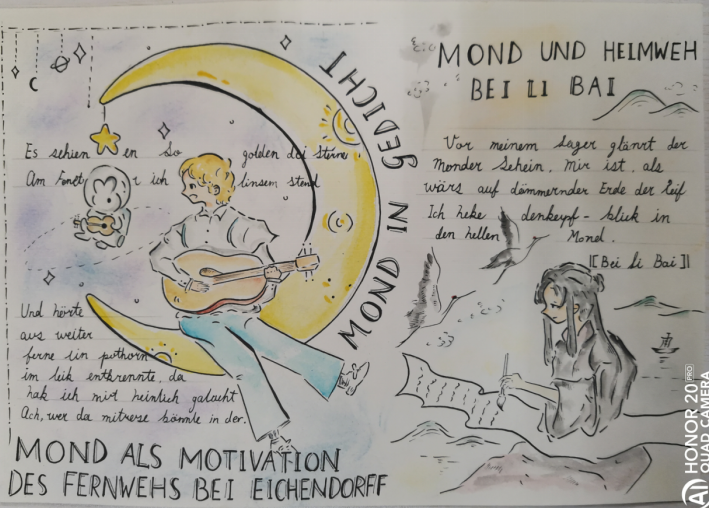 MOND IN GEDICHT
Es schien en so golden dei Sterne
Am r ich einsem stend
Und hörte
aus weiter
ferne ein pothorn
im leik entkrennte, da
hak ich mir heinlich gedacht
Ach, wer da mitrese könnte in der.
MOND ALS MOTIVATION
DES FERNWEHS BEI EICHENDORFF
MOND UND HEIMWEH
BEI LI BAI
Vor meinem Lager glänzt der
Monder Schein. Mir ist, als
wärs auf dämmernder Erde der Reif
Ich heke denkenpf - blick in
den hellen Mond.
[[Bei Li Bai]]
AI HONOR 20 PRO
QUAD CAMERA